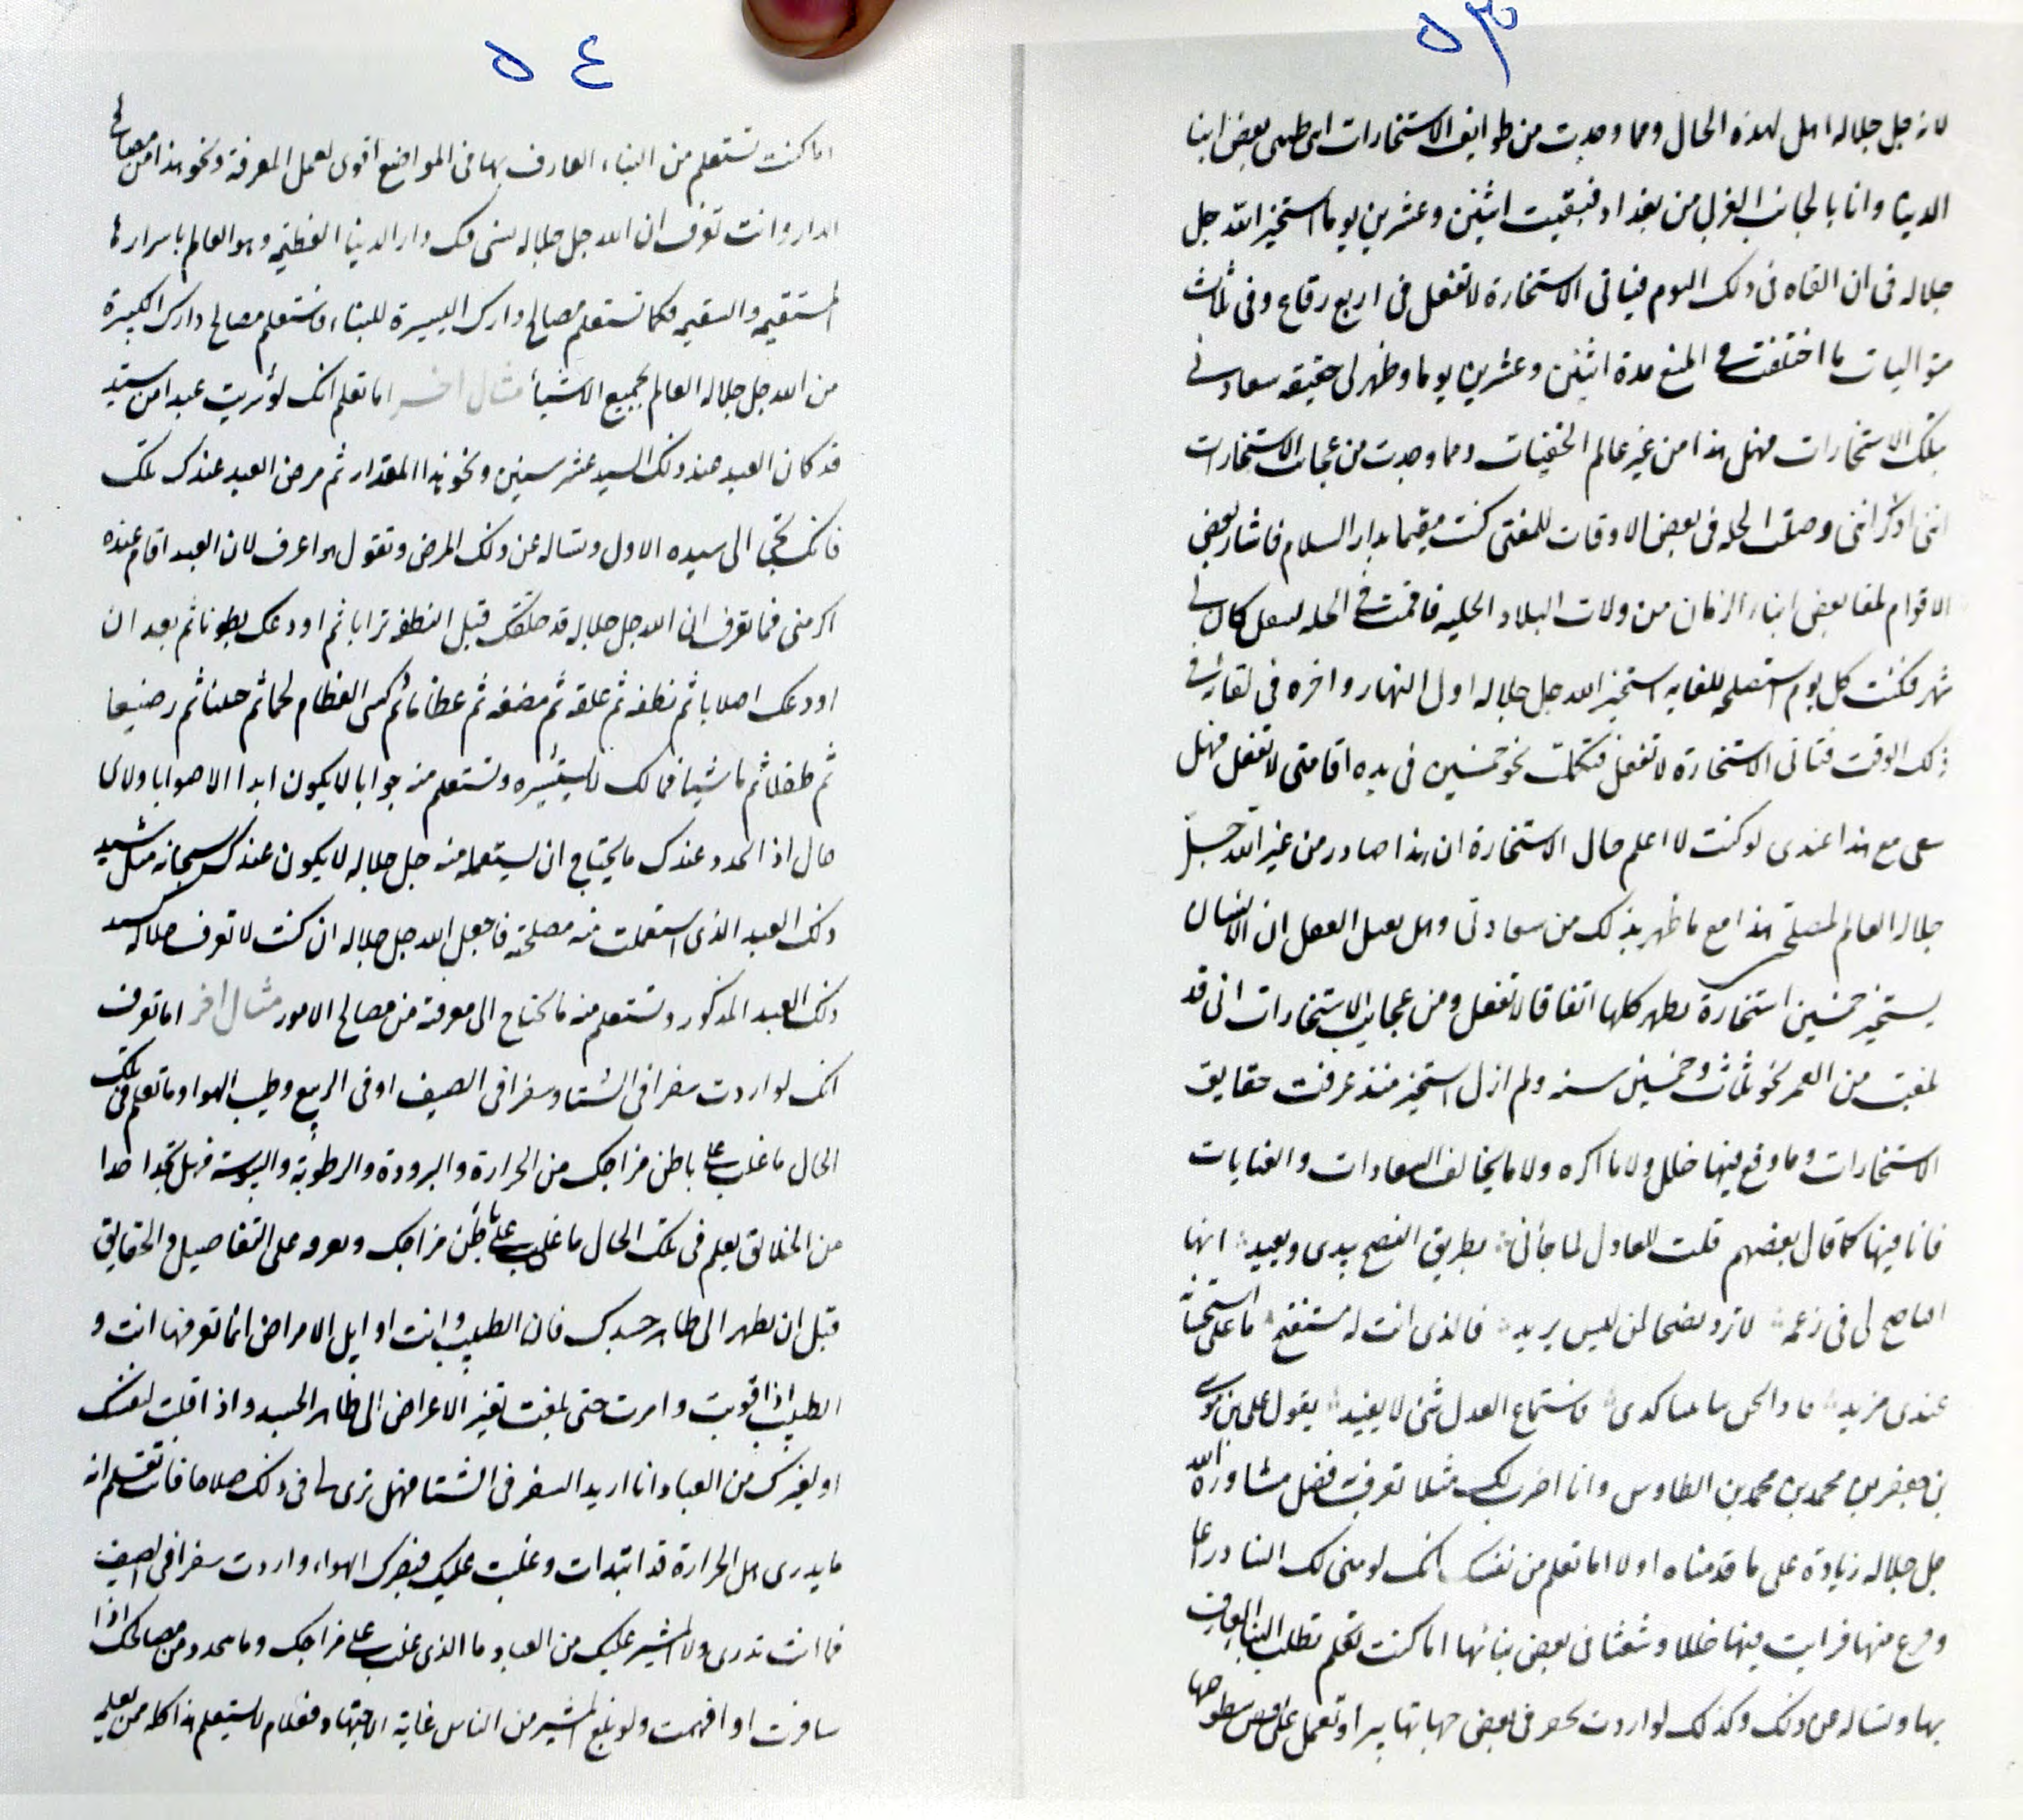 ٥٣
لانه جل جلاله اهل لهذه الحال ومما وجدت من طوايف الاستخارات انى طلبنى بعض ابنا
الدنيا وانا بالجانب الغربى من بغداد فبقيت اثنين وعشرين يوما استخير الله جل
جلاله فى ان القاه فى ذلك اليوم فياتى الاستخارة لا تفعل فى اربع رقاع وفى ثلاث
متواليات ما اختلفت فى المنع مدة اثنين وعشرين يوما وظهر لى حقيقه سعادتى
بتلك الاستخارات فهل هذا من غير عالم الخفيات ومما وجدت من عجايب الاستخارات
اننى اذكر اننى وصلت الحله فى بعض الاوقات التى كنت مقيما بدار السلام فاشار بعض
الاقوام بلقا بعض ابناء الزمان من ولات البلاد الحليه فاقمت فى الحله لشغل كان لى
شهر فكنت كل يوم استصلحه للقايه استخير الله جل جلاله اول النهار واخره فى لقائه فى
ذلك الوقت فتاتى الاستخارة لا تفعل فتكملت نحو خمسين فى مده اقامتى لا تفعل فهل
يبقى مع هذا عندى لو كنت لا اعلم حال الاستخارة ان هذا صادر من غير الله جل
جلاله العالم بمصلحتى هذا مع ما ظهر بذلك من سعادتى وهل يقبل العقل ان الانسان
يستخير خمسين استخارة يطهر كلها اتفاقا لا تفعل ومن عجايب الاستخارات انى قد
بلغت من العمر نحو ثلاث وخمسين سنه ولم ازل استخير منذ عرفت حقايق
الاستخارات وما وقع فيها خلل ولا ما اكره ولا ما يخالف السعادات والعنايات
فانا فيها كما قال بعضهم قلت للعاذل لما جأنى بطريق النصح يبدى ويعيد ايها
الناصح لى فى زعمه لا تزد نصحا لمن ليس يريد فالذى انت له مستقبح ما على استحسانه
عندى مزيد فاستماع العذل شئ لا يفيد يقول على بن موسى
بن جعفر بن محمد بن محمد بن الطاوس وانا اضرب لك مثلا تعرف به فضل مشاورة الله
جل جلاله زيادة على ما قدمناه اولا اما تعلم من نفسك انك لو بنى لك البنا دارا
وفرغ منها فرايت فيها خللا وشعثا فى بعض بنائها اما كنت تطلب البنا العارف
بها وتساله عن ذلك وكذلك لو اردت تحفر فى بعض جهاتها بيرا او تعمل على بعض سطوحها
٥٤
اما كنت تستعلم من البناء العارف بها فى المواضع اقوى لعمل الغرفة ونحو هذا من مصالح
الدار وانت تعرف ان الله جل جلاله بنى لك دار الدنيا العظيمة وهو العالم باسرارها
المستقيمه والسقيمه فكما تستعلم مصالح دارك اليسيرة للبناء فاستعلم مصالح دارك الكبيرة
من الله جل جلاله العالم بجميع الاشيأ مثال اخر اما تعلم انك لو شريت عبدا من سيد
قد كان العبد عند ذلك السيد عشر سنين ونحو هذا المقدار ثم مرض العبد عندك تلك
فانك تجئ الى سيده الاول وتساله عن ذلك المرض وتقول هو اعرف لان العبد اقام عنده
اكثر منى فما تعرف ان الله جل جلاله قد خلقك قبل النطفه ترابا ثم اودعك بطونا ثم بعد ان
اودعك اصلابا ثم نطفه ثم علقه ثم مضغه ثم عظاما ثم كسى العظام لحما ثم جنينا ثم رضيعا
ثم طفلا ثم ناشيا فمالك لا تستشيره وتستعلم منه جوابا لا يكون ابدا الا صوابا ولاى
حال اذا تجدد عندك ما يحتاج ان يستعلمه منه جل جلاله لا يكون عندك سبحانه مثل سيد
ذلك العبد الذى استعلمت منه مصلحته فاجعل الله جل جلاله ان كنت لا تعرف جلاله كسيد
ذلك العبد المذكور وتستعلم منه ما تحتاج الى معرفته من مصالح الامور مثال اخر اما تعرف
انك لو اردت سفرا فى الشتا وسفرا فى الصيف او فى الربيع وطيب الهوا وما تعلم فى تلك
الحال ما غلب على باطن مزاجك من الحرارة والبرودة والرطوبة واليبوسة فهل تجد احدا
من الخلائق يعلم فى تلك الحال ما غلب على باطن مزاجك ويعرفه على التفاصيل والحقايق
قبل ان يظهر الى ظاهر جسدك فان الطبيب وانت اوايل الامراض انما تعرفها انت و
الطبيب اذا قويت وامرت حتى بلغت تغير الاعراض الى ظاهر الجسد واذا قلت لنفسك
او لغيرك من العباد انا اريد السفر فى الشتا فهل ترى لى فى ذلك صلاحا فانت تعلم انه
ما يدرى هل الحرارة قد ابتدات وغلبت عليك فيضرك الهواء واردت سفرا فى الصيف
فما انت تدرى ولا المشير عليك من العباد ما الذى غلب على مزاجك وما يتجدد من مصالحك اذا
سافرت او اقمت ولو بلغ المشير من الناس غاية الاجتهاد فعلام لا تستعلم هذا كله ممن يعلمه